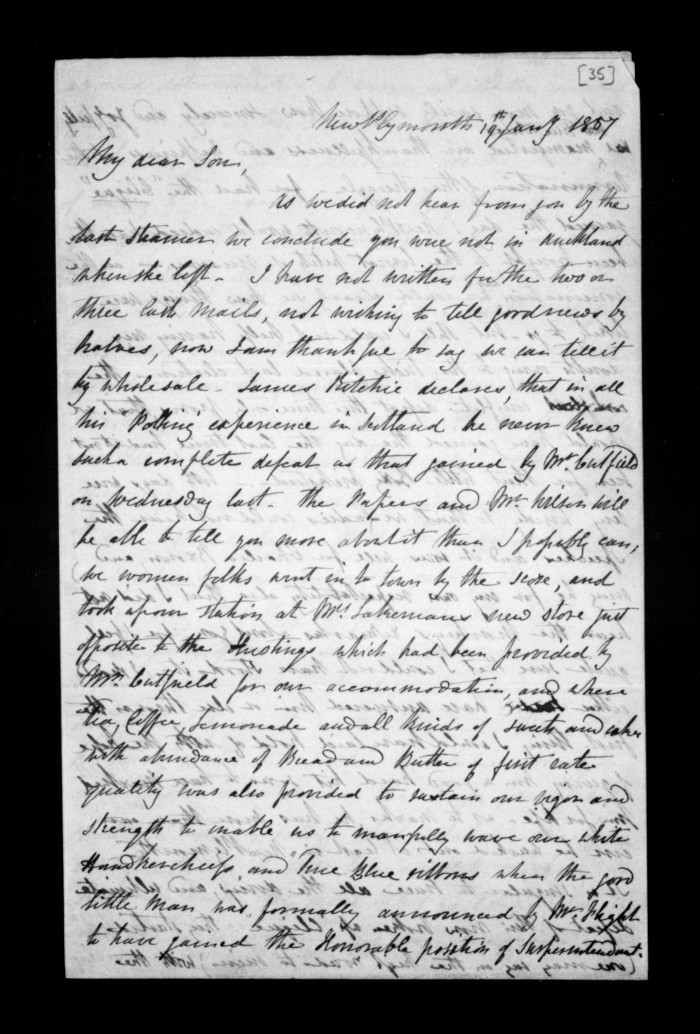 [35]
New Plymouth 19th Jany 1857
My dear Son,
As we did not hear from you by the
last Steamer we conclude you were not in Auckland
when she left - I have not written for the two or
three last Mails, not wishing to tell good news by
halves, now I am thankful to say we can tell it
by wholesale - James Ritchie declares, that in all
his Polling experience in Scotland he never knew
such a complete defeat as that gained by Mr. Cutfield
on Wednesday last - The Papers and Mr. Wilson will
be able to tell you more about it than I propbly can,
we women folks went in to town by the score, and
took up our station at Mrs. Lakemans new store just
opposite to the Hustings which had been provided by
Mr. Cutfield for our accommodation, and where
Tea, Coffee, Lemonade and all kinds of sweets and cakes
with abundance of Bread and Butter of first rate
quality was also provided to sustain our vigor and
strength to enable us to manfully wave our white
Handkercheefs and True Blue ribbons when the good
little Man was formally announced by Mr. Flight
to have gained the Honorable position of Superintendant.